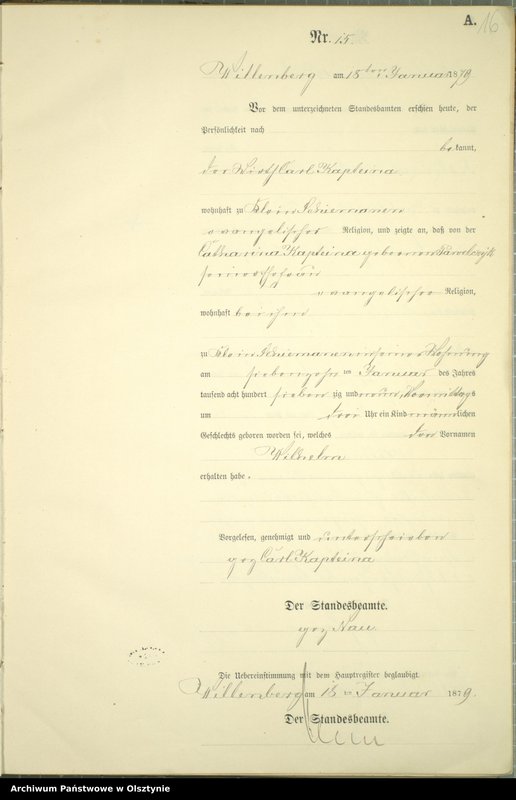 A. 16
Nr. 15.
Willenberg am 18ten Januar 1879
Vor dem unterzeichneten Standesbeamten erschien heute, der
Persönlichkeit nach
bekannt,
der Wirth Carl Kapteina
wohnhaft zu Klein Schiemanen
evangelischer Religion, und zeigte an, daß von der
Catharina Kapteina geborenen Pawelczyk
seiner Ehefrau
evangelischer Religion,
wohnhaft bei ihm
zu Klein Schiemanen in seiner Wohnung
am siebenzehnten Januar des Jahres
tausend acht hundert siebenzig und neun, Vormittags
um drei Uhr ein Kind männlichen
Geschlechts geboren worden sei, welches den Vornamen
Wilhelm
erhalten habe.
Vorgelesen, genehmigt und unterschrieben
gez Carl Kapteina
Der Standesbeamte.
gez Nau
Die Uebereinstimmung mit dem Hauptregister beglaubigt
Willenberg am 18ten Januar 1879.
Der Standesbeamte.
Archiwum Państwowe w Olsztynie